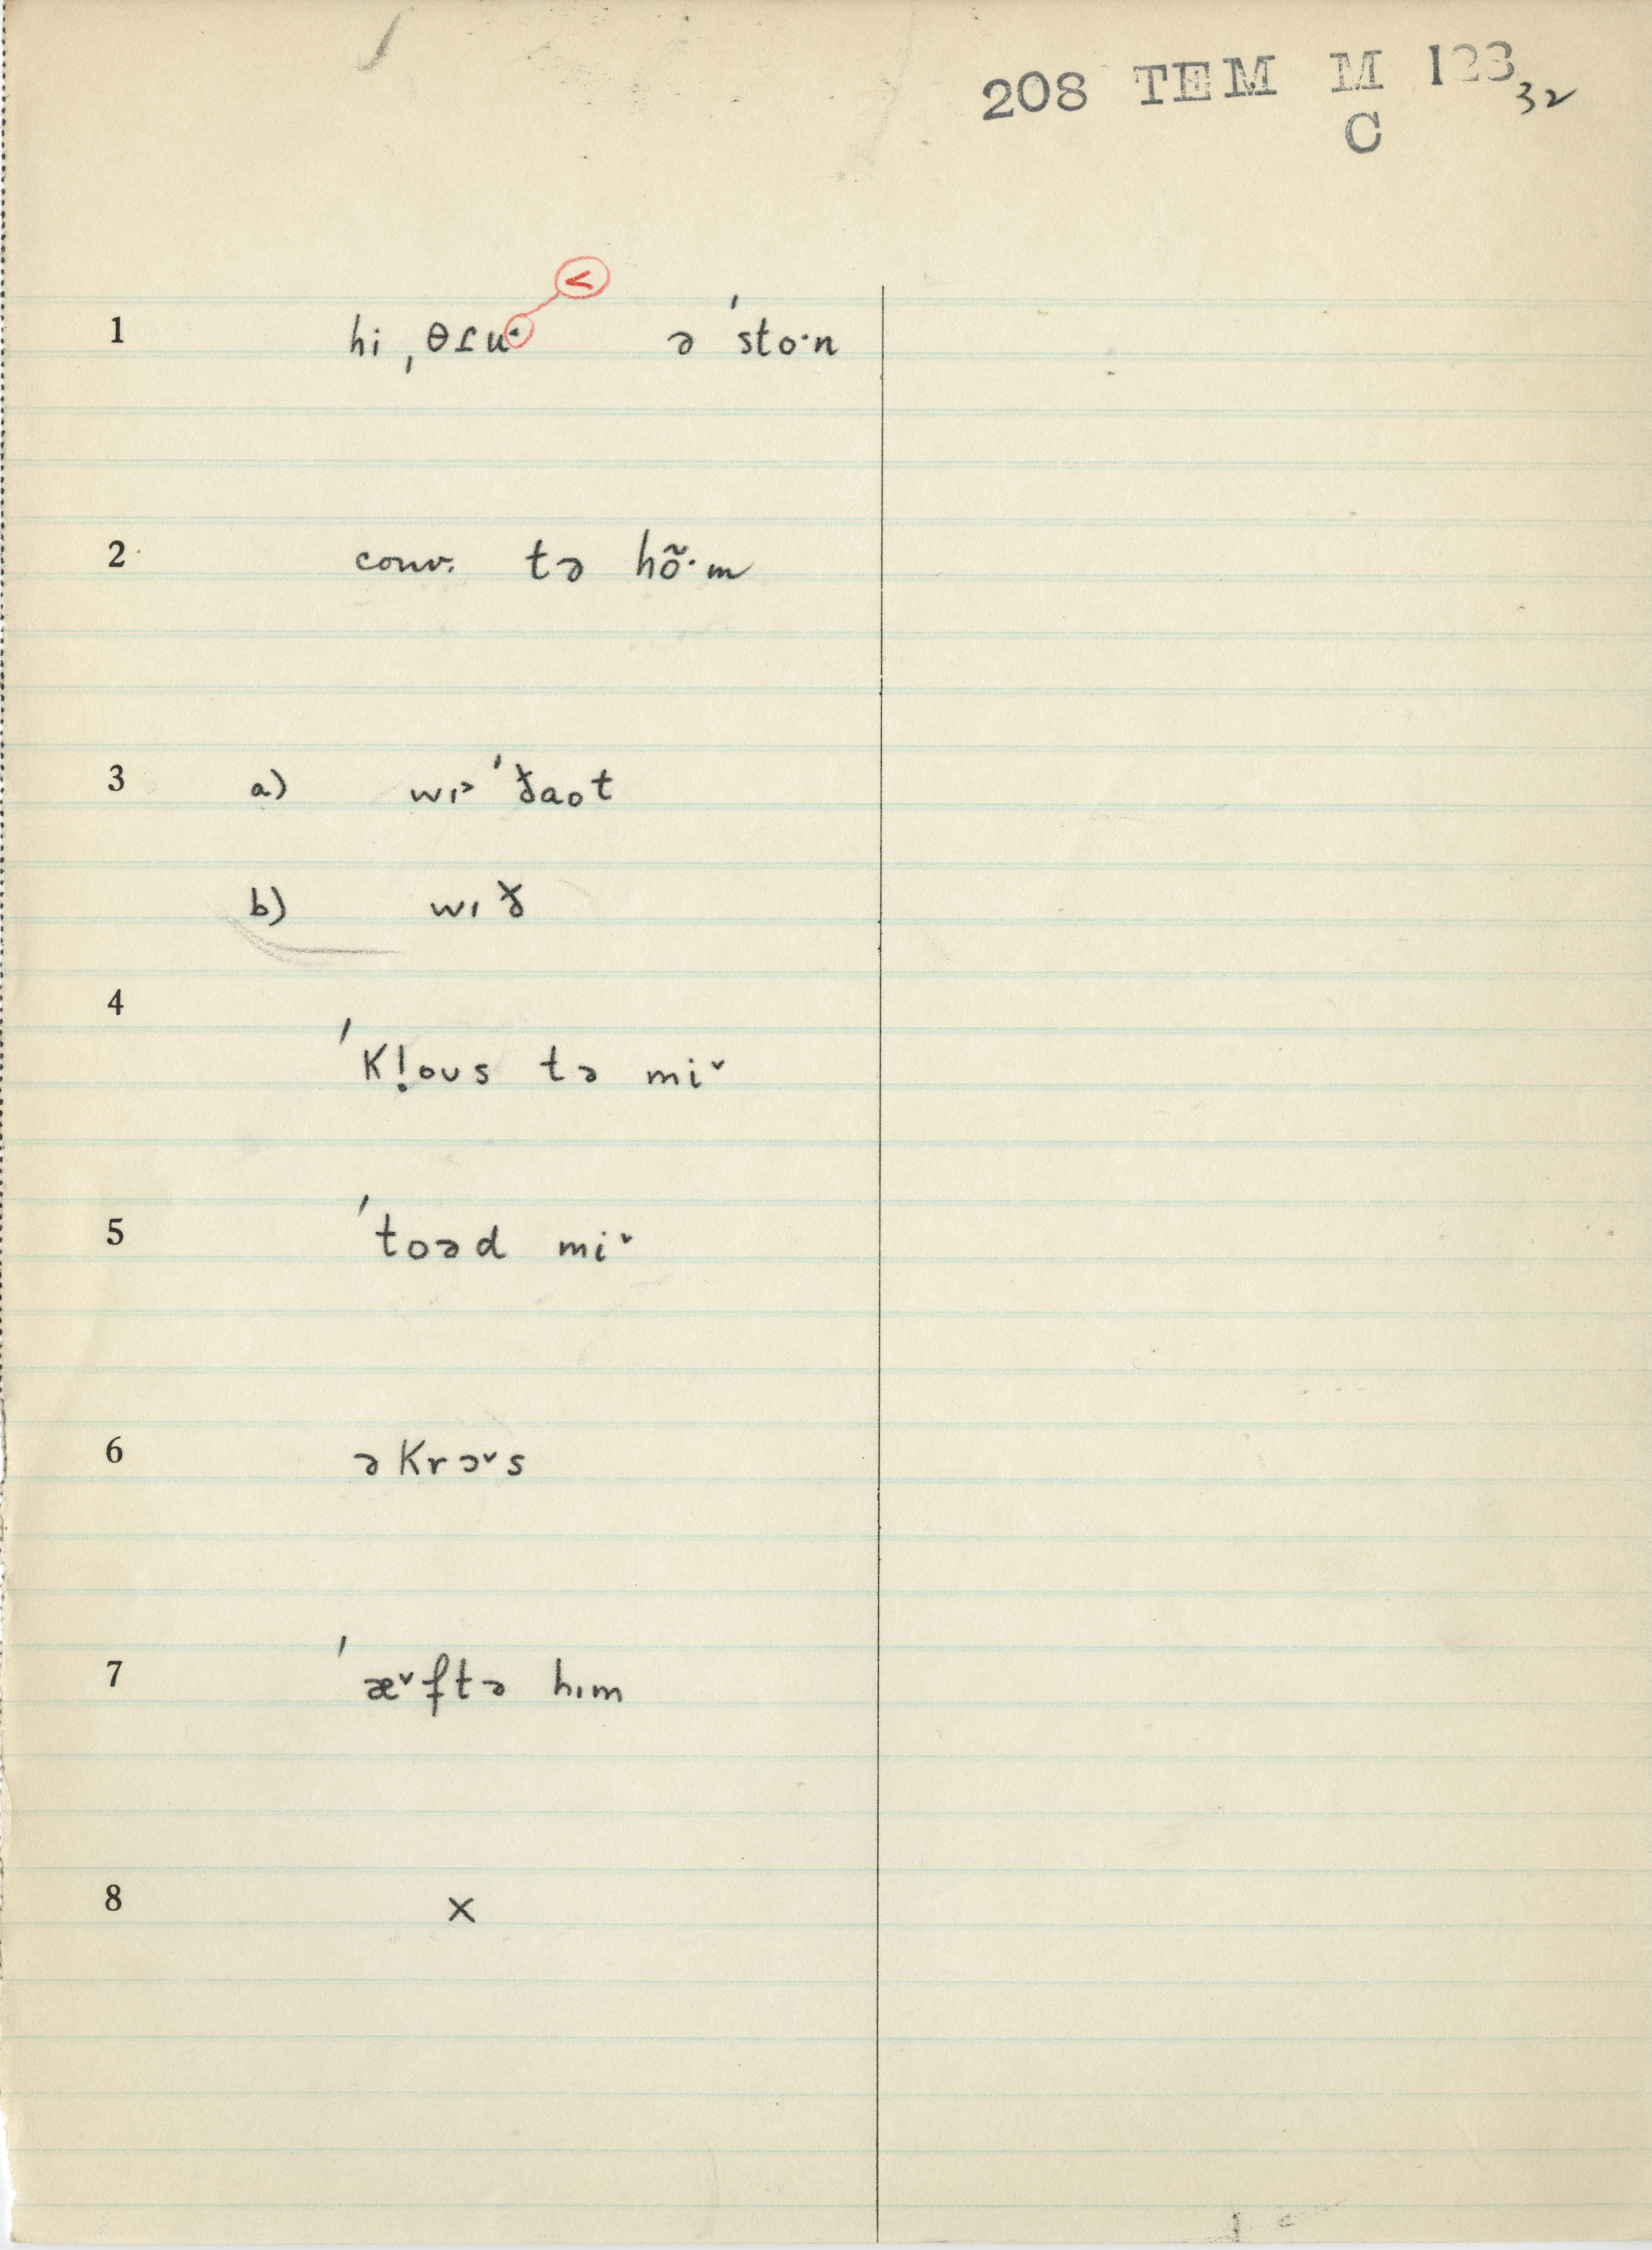 208 TEM M 123 32
C
<
1 hi ˌθɾu˂ ə ˈsto·n
2 conv. tə hõ·m
3 a) wɪ˃ ˈðaot
b) wɪð
4 ˈkl̩oʊs tə miˇ
5 ˈtoəd miˇ
6 əkrɔˇs
7 ˈæˇftə hɪm
8 ×